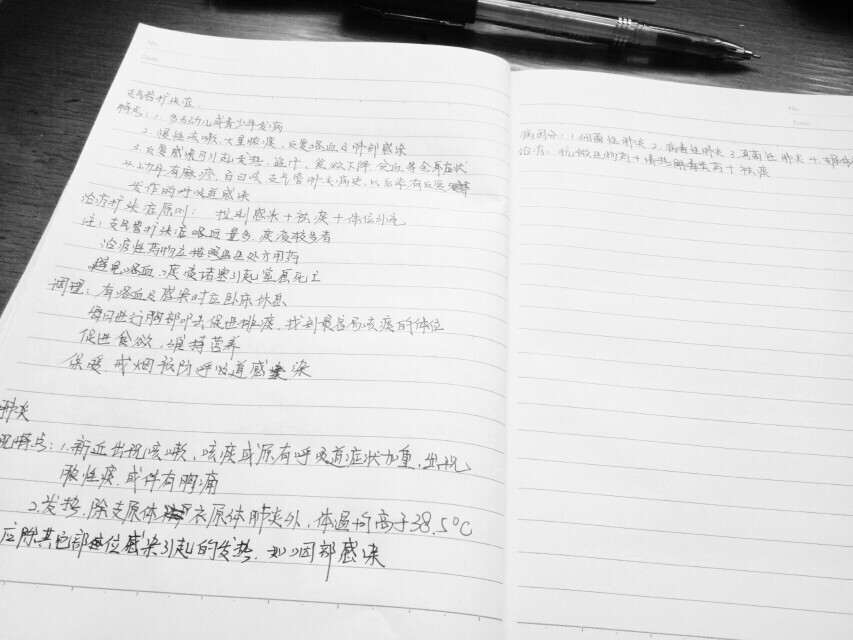 支气管扩张症
特点: 1. 多为幼儿或青少年发病
2. 慢性咳嗽、大量脓痰、反复咯血及肺部感染
3. 反复感染可引起发热、盗汗、食欲下降、贫血等全身症状
4. 幼年有麻疹、百日咳、支气管肺炎病史, 以后常有反复
发作的呼吸道感染
治疗扩张症原则: 控制感染+祛痰+体位引流
注: 支气管扩张症咯血量多、痰液较多者
治疗性药物应按照医生处方用药
避免咯血、痰液诸塞引起窒息死亡
调理: 有咯血及感染时应卧床休息
每日进行胸部叩击促进排痰, 找到最容易咳痰的体位
促进食欲、维持营养
保暖、戒烟预防呼吸道感染
肺炎
特点: 1. 新近出现咳嗽, 咳痰或原有呼吸道症状加重, 出现
脓性痰, 或伴有胸痛
2. 发热, 除支原体 衣原体肺炎外, 体温均高于38.5°C
应除其它部位感染引起的发热, 如 部感染
病因分: 1. 细菌性肺炎 2. 病毒性肺炎 3. 真菌性肺炎 4.
治疗: 抗微生物药+清热解毒类药+祛痰